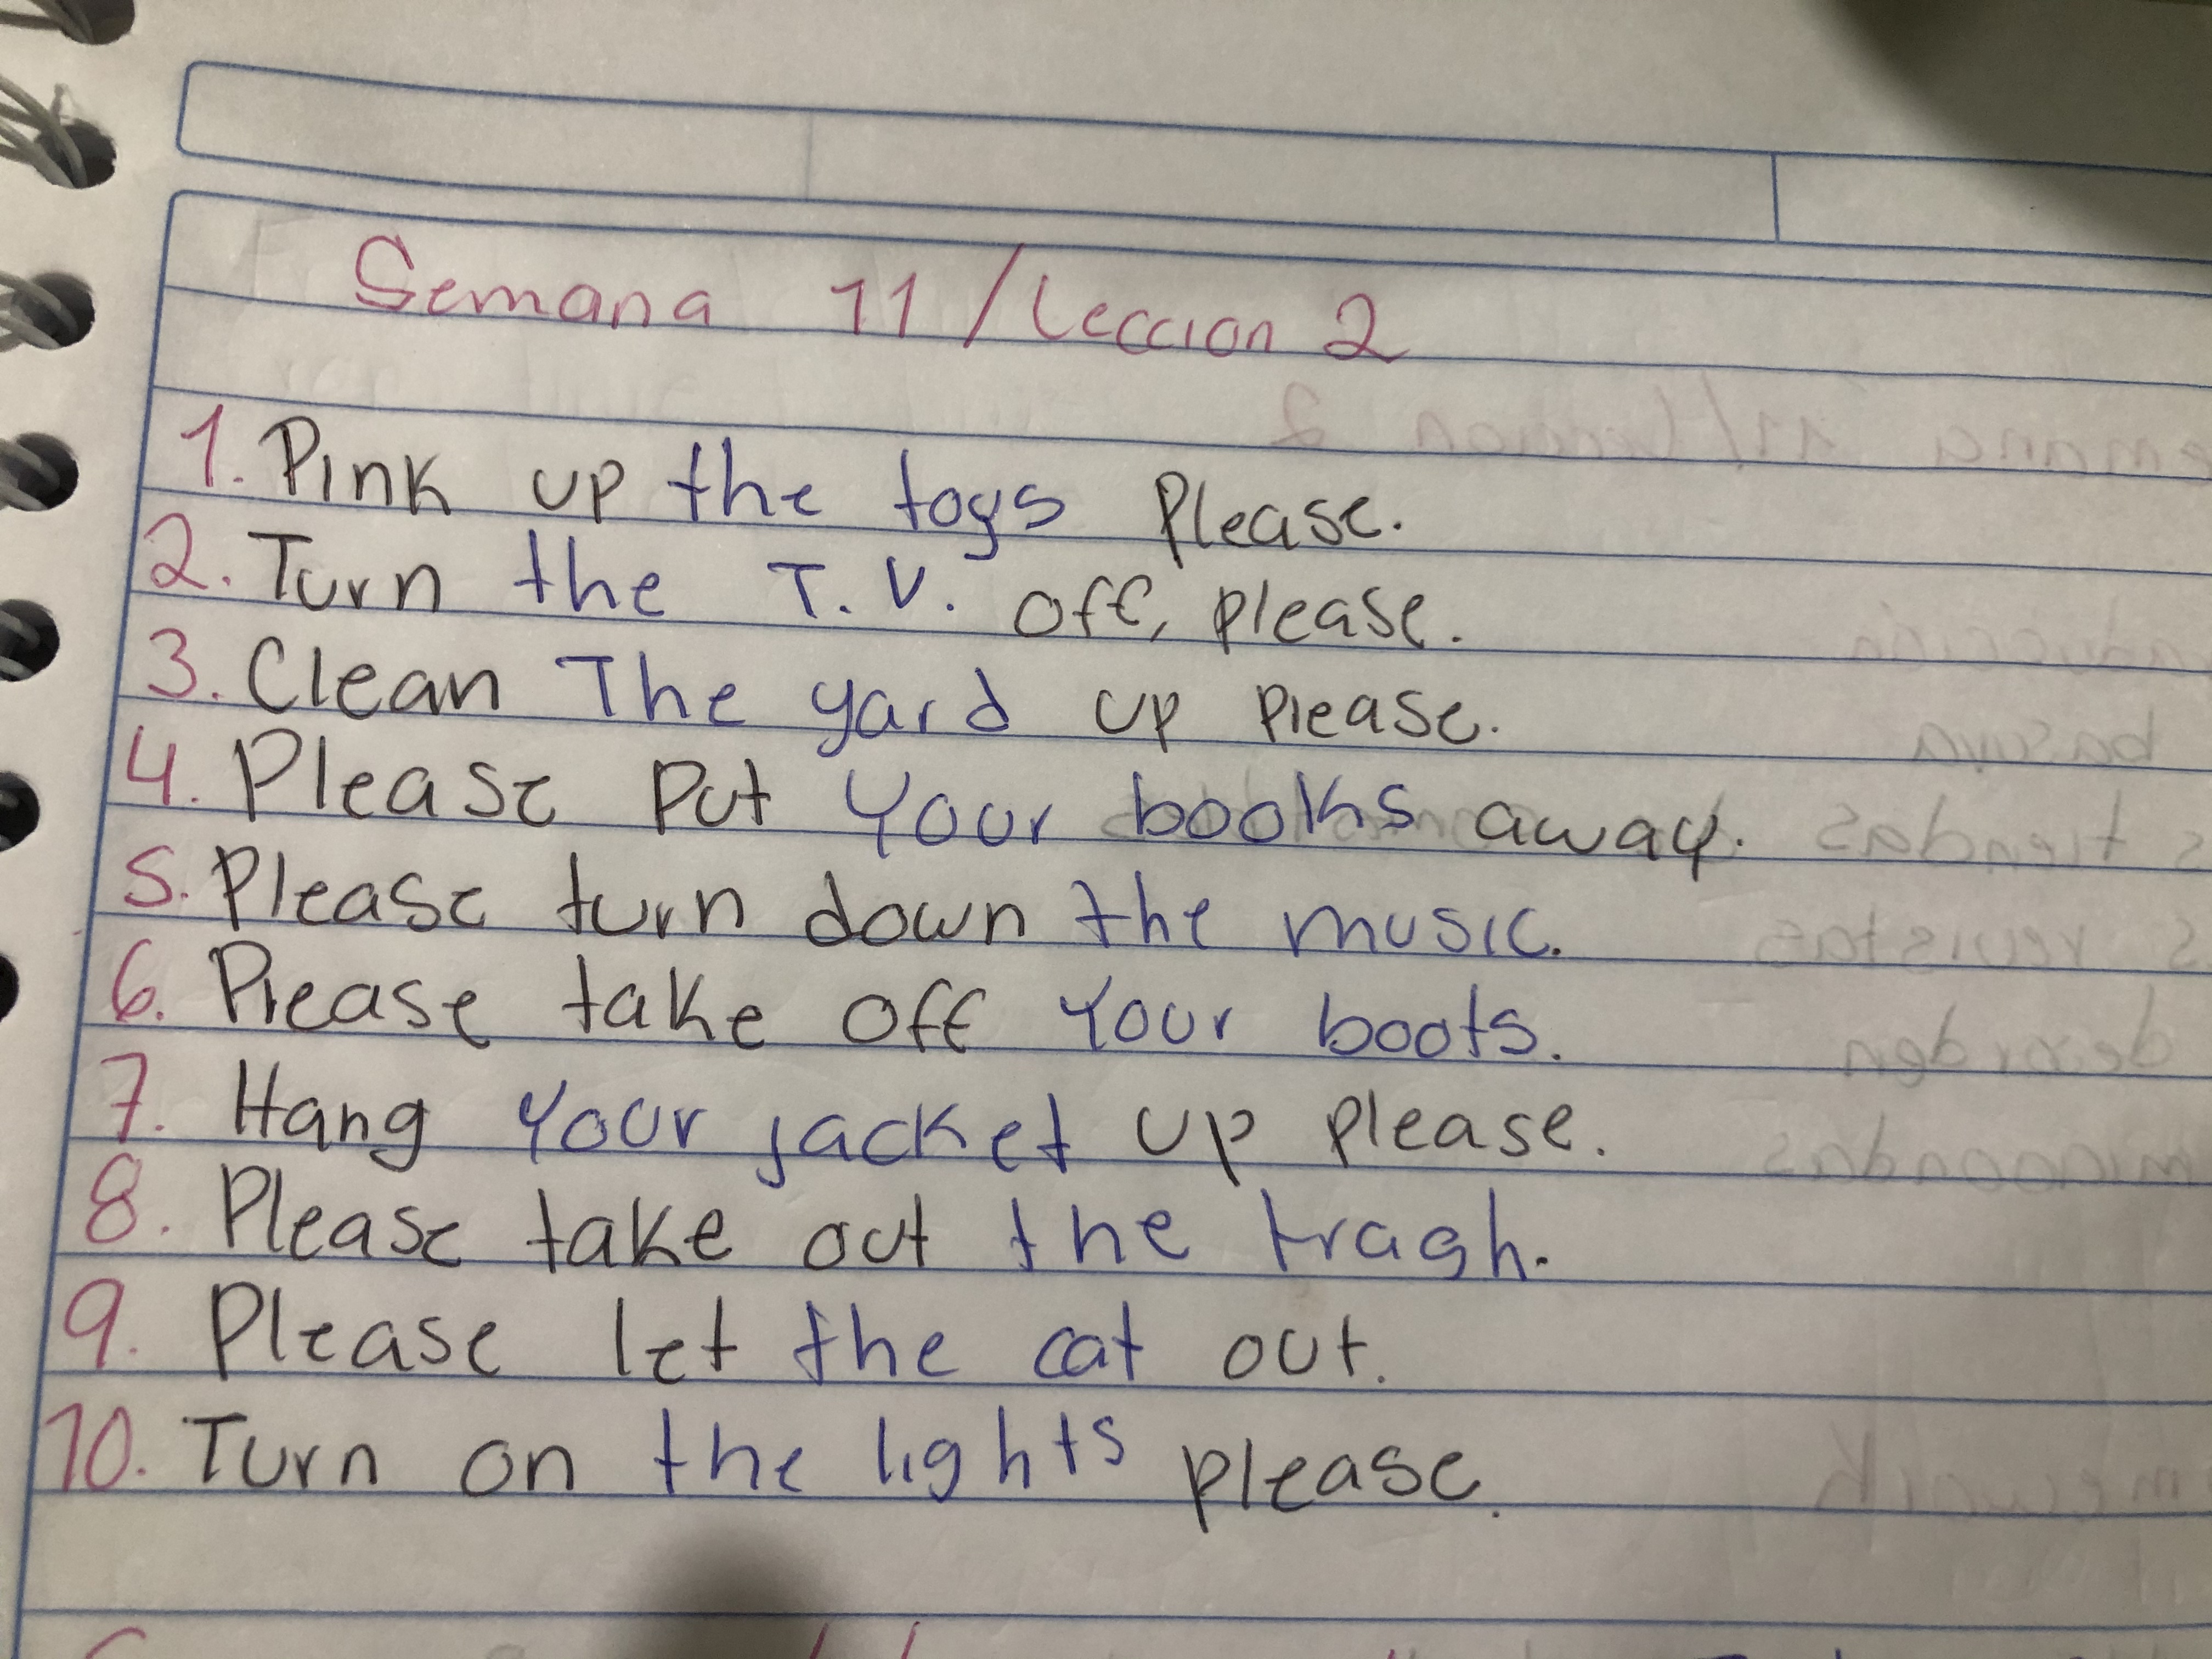 Semana 11/Leccion 2
1. Pink up the toys Please.
2. Turn the T.V. off, please.
3. Clean The yard up Please.
4. Please Put Your books away.
5. Please turn down the music.
6. Please take off Your boots.
7. Hang Your jacket up please.
8. Please take out the tragh.
9. Please let the cat out.
10. Turn on the lights please.